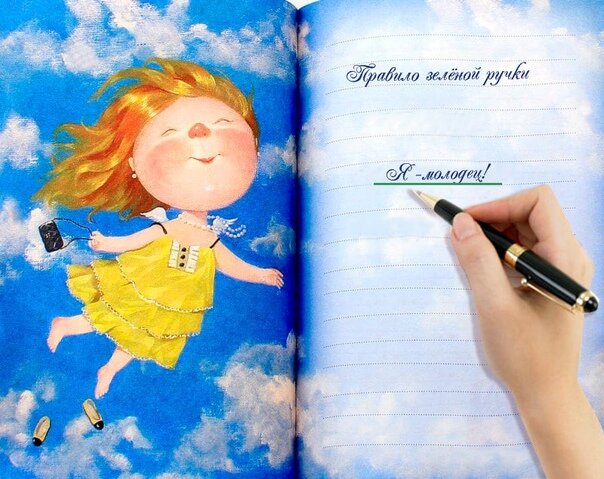 Правило зелёной ручки
Я -молодец!